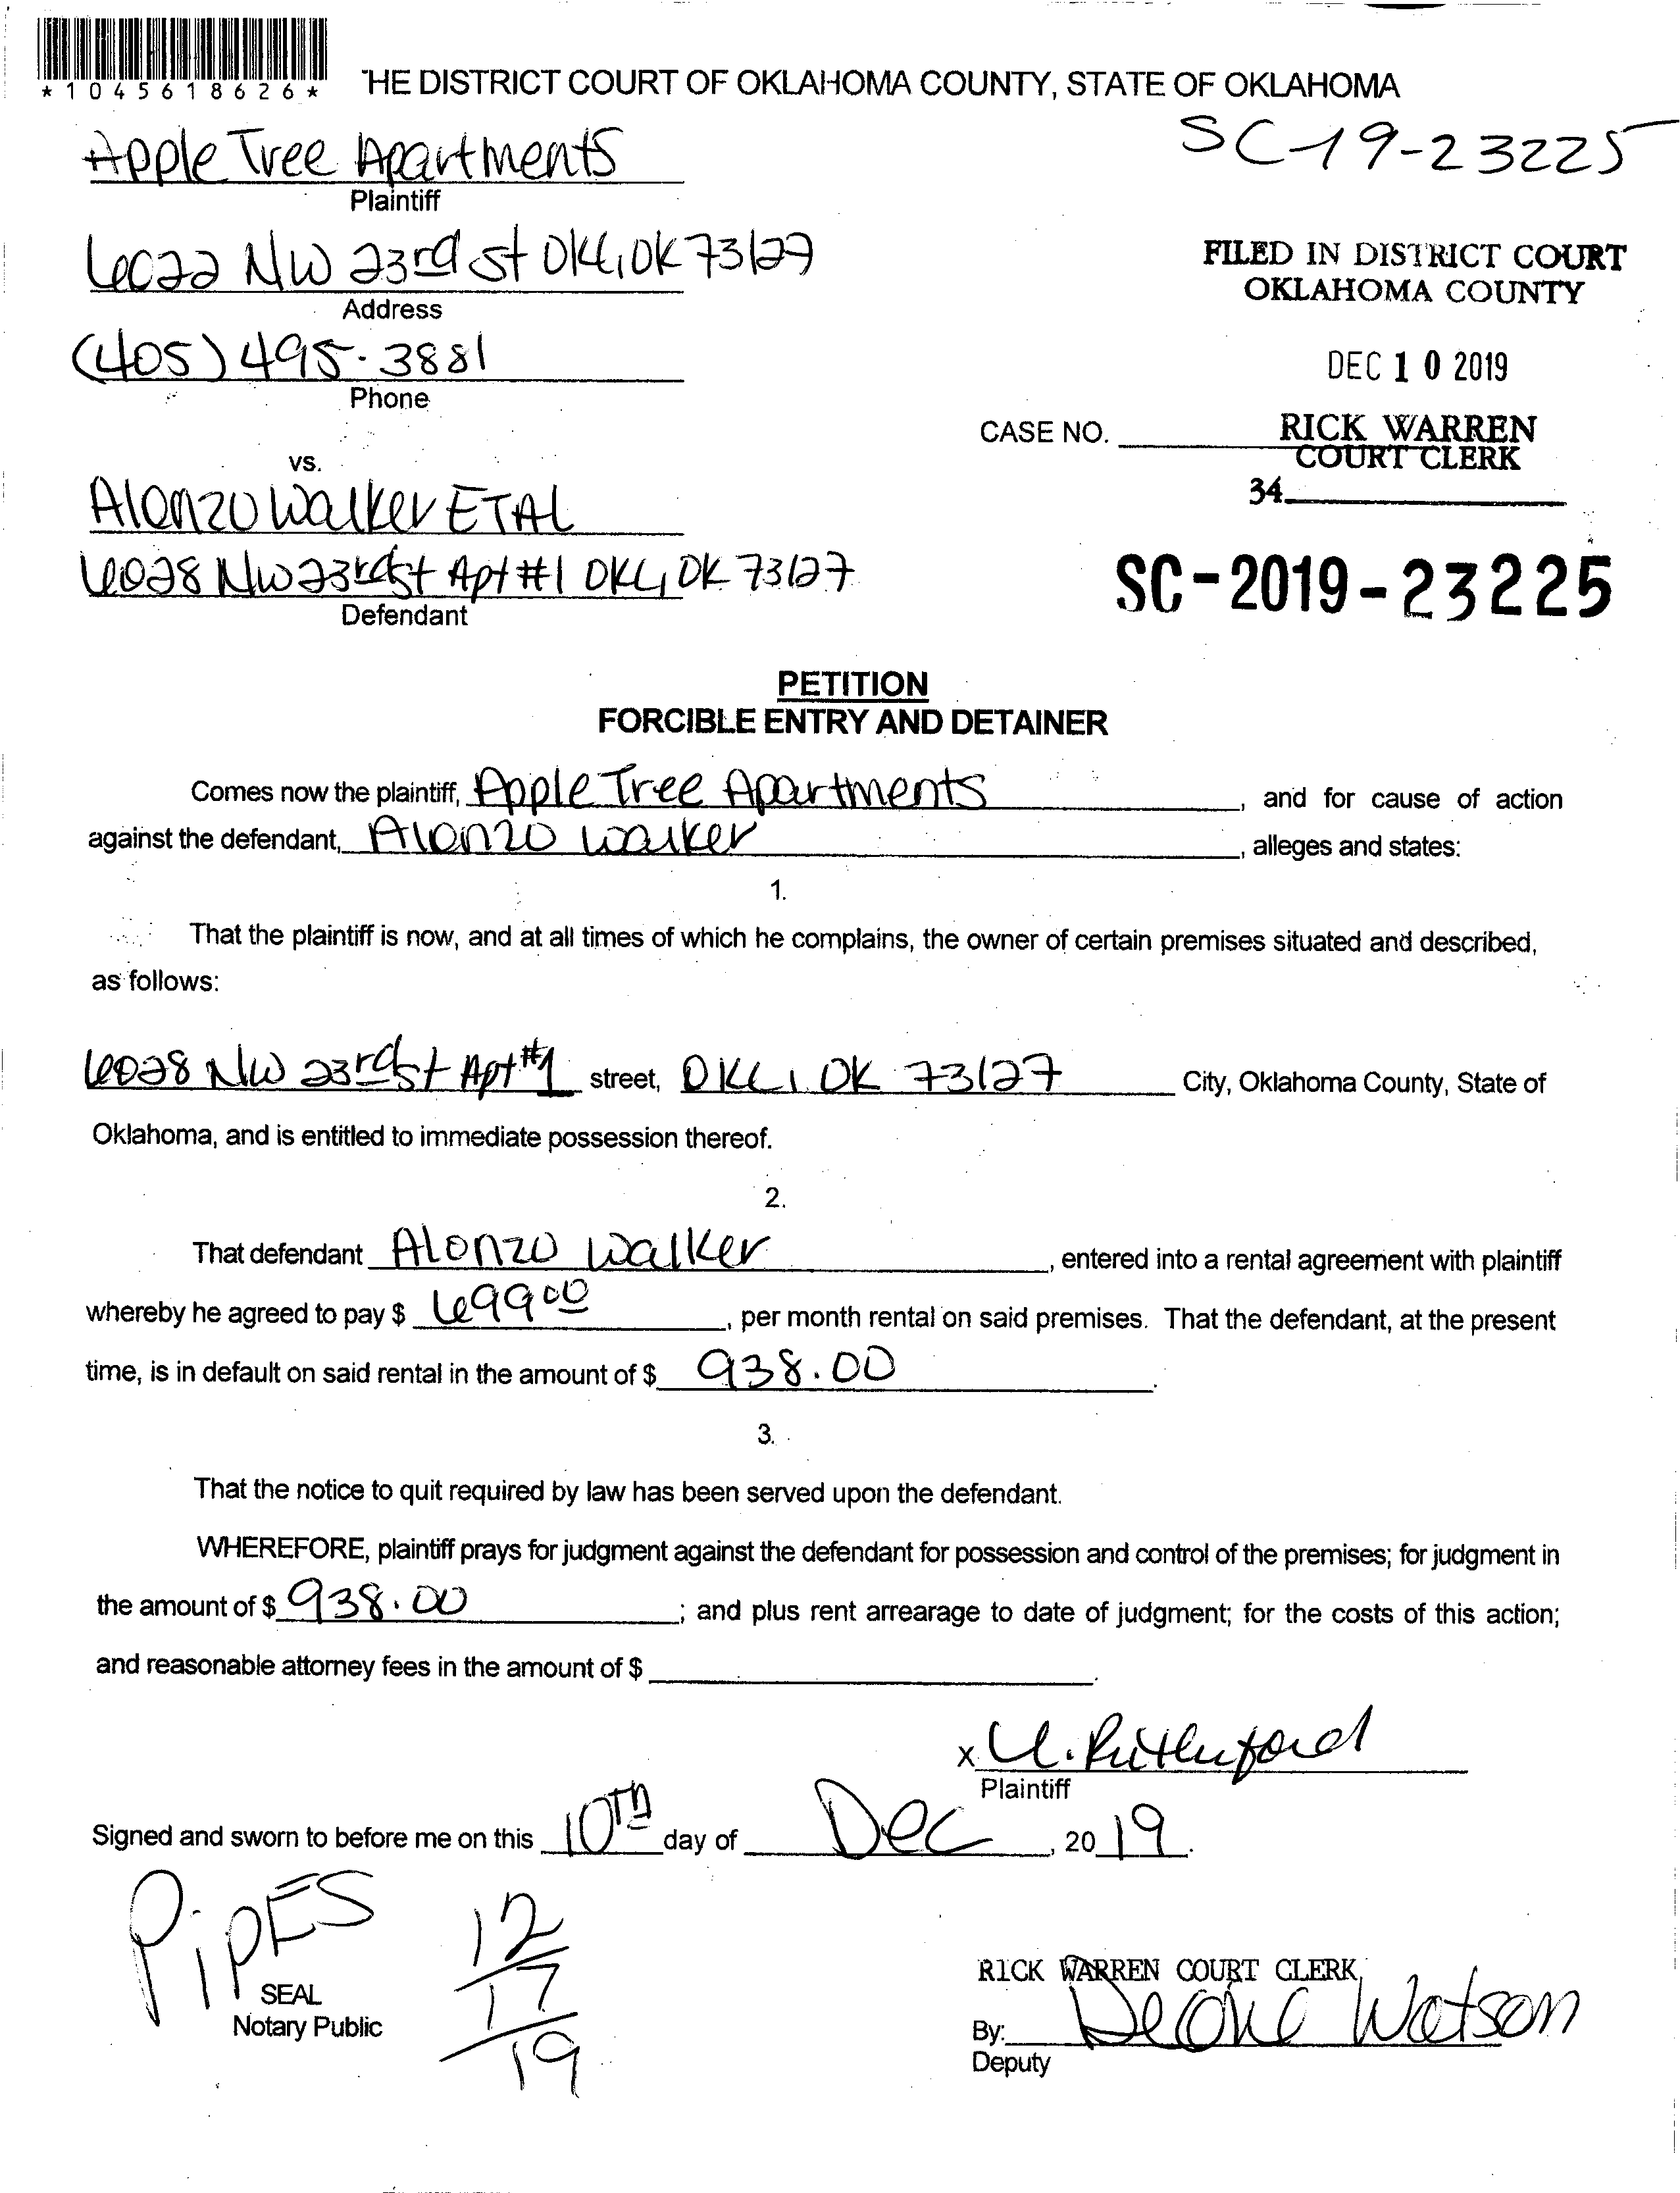 *1045618626*
THE DISTRICT COURT OF OKLAHOMA COUNTY, STATE OF OKLAHOMA
Apple Tree Apartments
SC-19-23225
Plaintiff
6022 NW 23rd St OKC, OK 73127
FILED IN DISTRICT COURT
OKLAHOMA COUNTY
Address
(405) 495-3881
DEC 10 2019
Phone
CASE NO.
RICK WARREN
COURT CLERK
vs.
34
Alonzo Walker ETAL
6028 NW 23rd St Apt #1 OKC, OK 73127
SC-2019-23225
Defendant
PETITION
FORCIBLE ENTRY AND DETAINER
Comes now the plaintiff, Apple Tree Apartments, and for cause of action
against the defendant, Alonzo Walker, alleges and states:
1.
That the plaintiff is now, and at all times of which he complains, the owner of certain premises situated and described,
as follows:
6028 NW 23rd St Apt #1 street, OKC, OK 73127 City, Oklahoma County, State of
Oklahoma, and is entitled to immediate possession thereof.
2.
That defendant Alonzo Walker, entered into a rental agreement with plaintiff
whereby he agreed to pay $ 699 00, per month rental on said premises. That the defendant, at the present
time, is in default on said rental in the amount of $ 938.00.
3.
That the notice to quit required by law has been served upon the defendant.
WHEREFORE, plaintiff prays for judgment against the defendant for possession and control of the premises; for judgment in
the amount of $ 938.00; and plus rent arrearage to date of judgment; for the costs of this action;
and reasonable attorney fees in the amount of $ .
x U. Rutherford
Plaintiff
Signed and sworn to before me on this 10TH day of Dec, 2019.
PipES
12
17
19
SEAL
Notary Public
RICK WARREN COURT CLERK
By: Deone Watson
Deputy